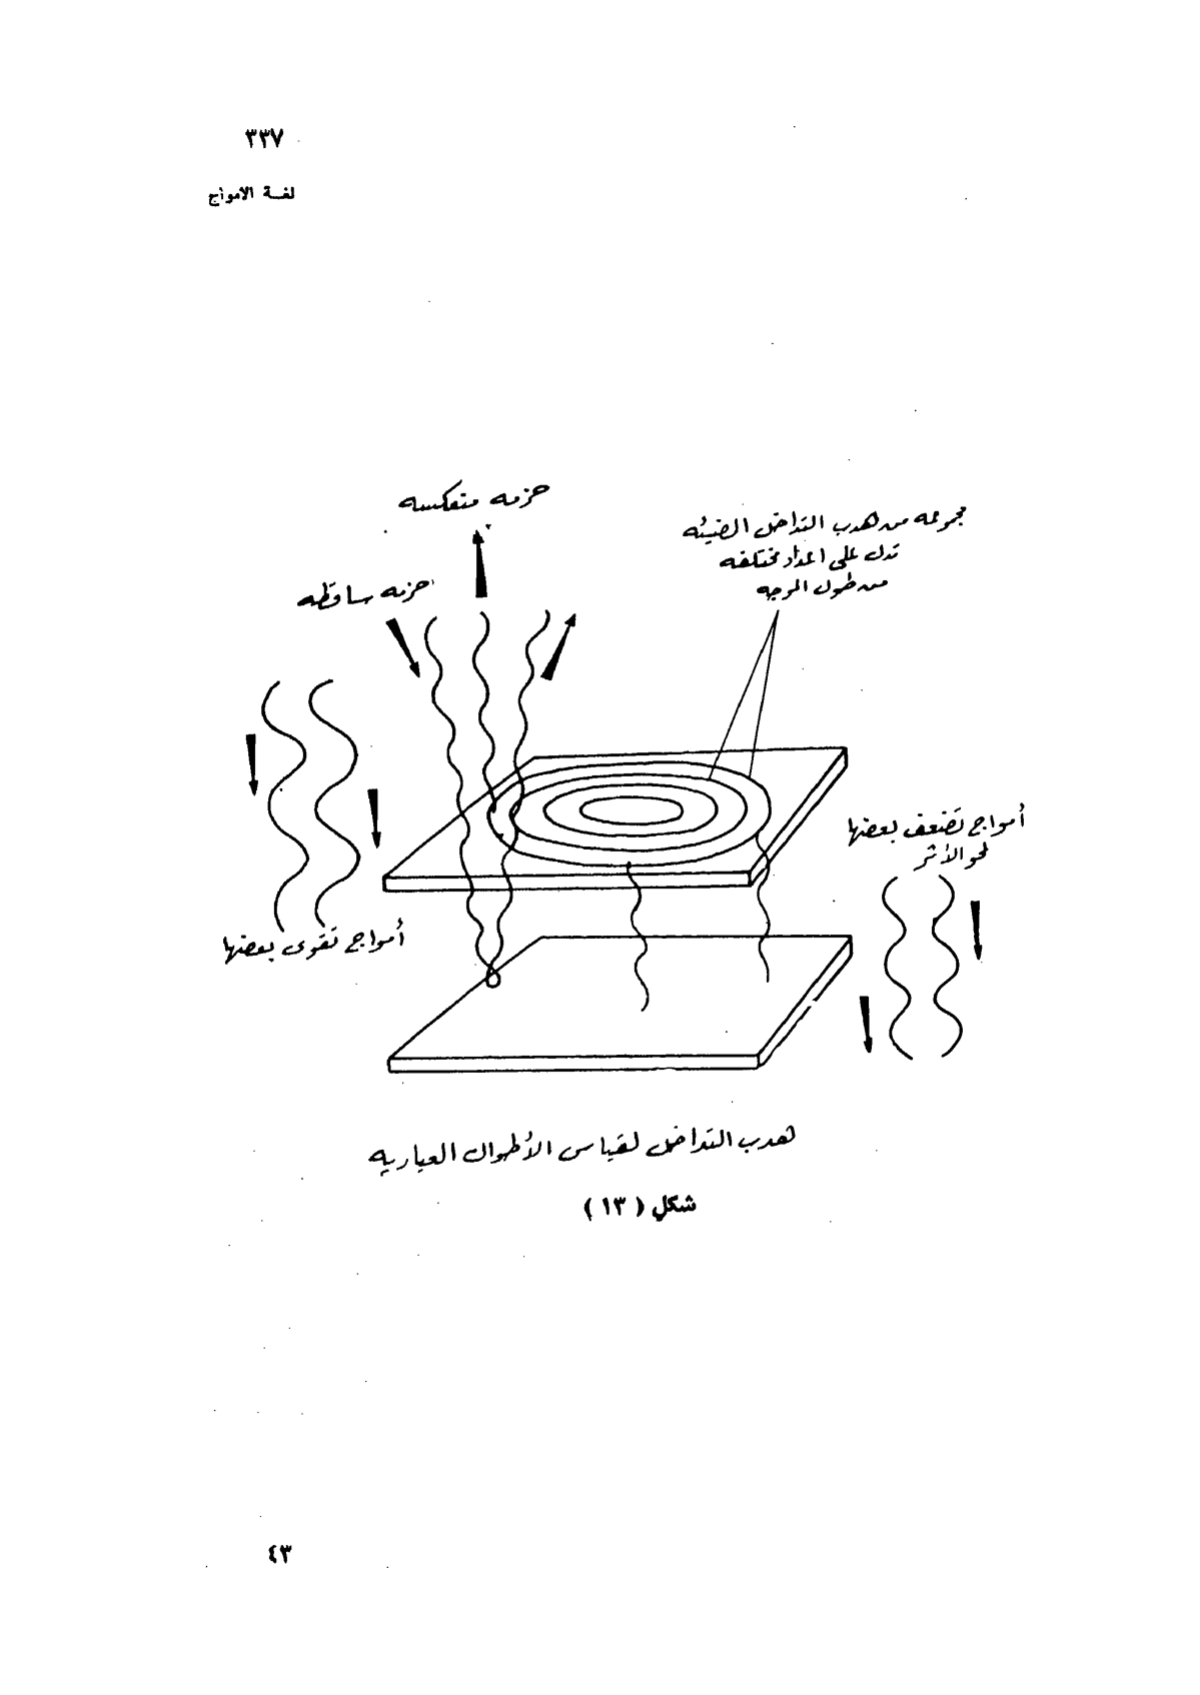 ٣٣٧
لغة الامواج
حزمه منعكسه
مجموعه من هدب التداخل المضيئه
تدل على اعداد مختلفه
من طول الموجه
حزمه ساقطه
أمواج تضعف بعضها
لمحو الأثر
أمواج تقوى بعضها
هدب التداخل لقياس الأطوال العياريه
شكل (١٣)
٤٣